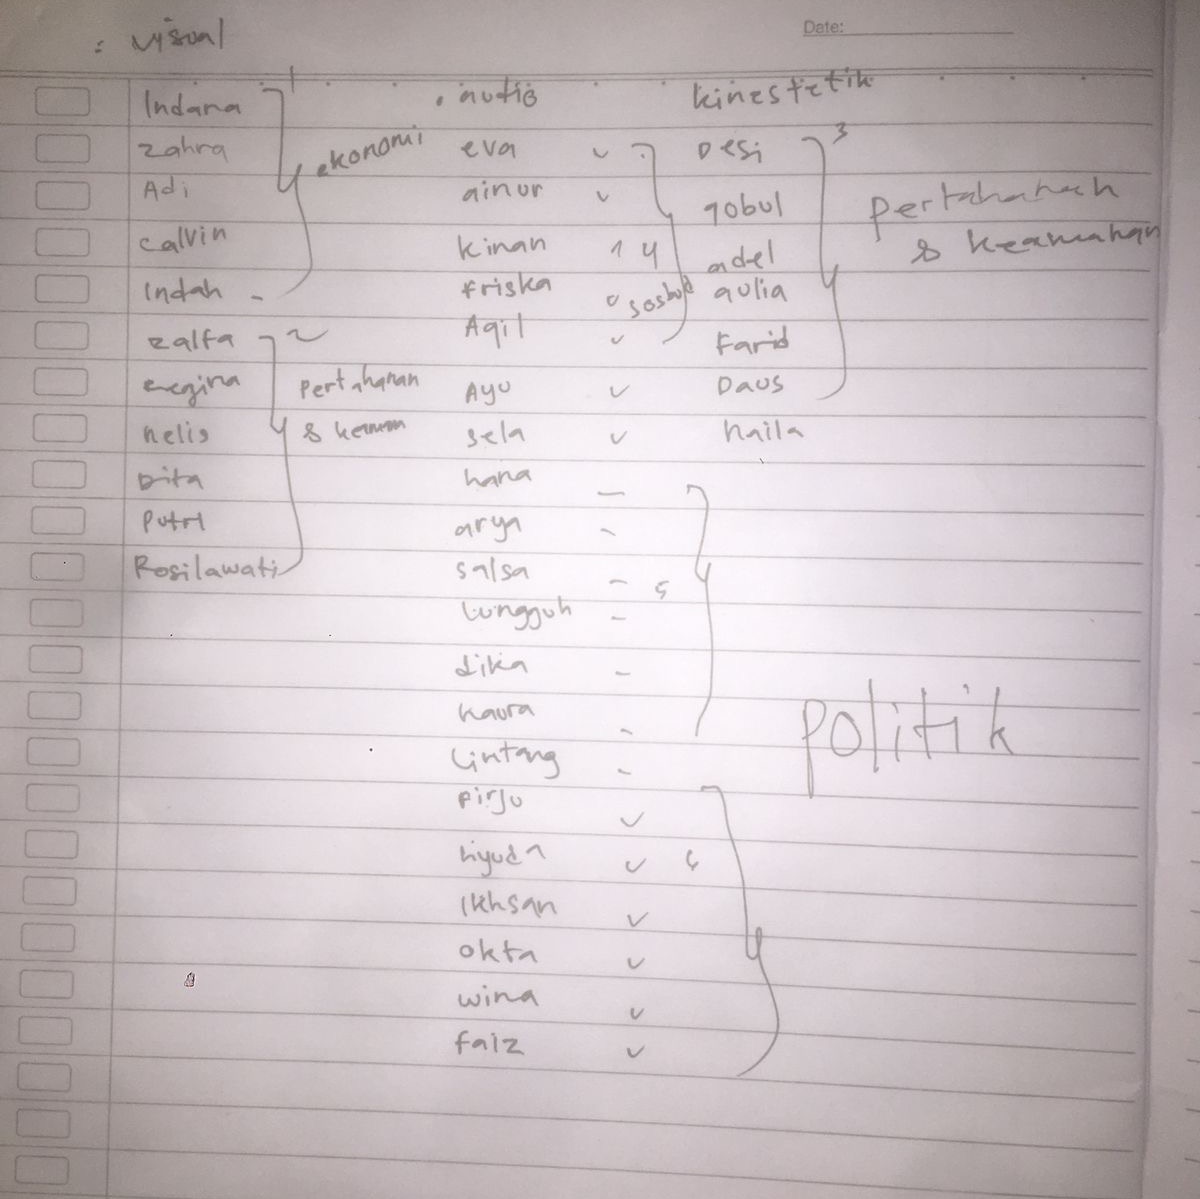 : visual
Date:
1
Indana
Zahra
Adi
Calvin
Indah -
ekonomi
zalfa 2
regina pertahanan
nelis & keaman
Dita
Putri
Rosilawati
. autio
eva ✓
ainur ✓
kinan 1 4
friska ✓ sosbud
Aqil ✓
Ayu ✓
sela ✓
hana -
arya -
salsa - 5
tungguh -
dika -
kaura -
Lintang -
Firju ✓
hyuda ✓ 6
Ikhsan ✓
okta ✓
wina ✓
faiz ✓
kinestetik
Desi 3
qobul
adel
aulia
Farid
Daus
haila
pertahanan
& keamanan
politik